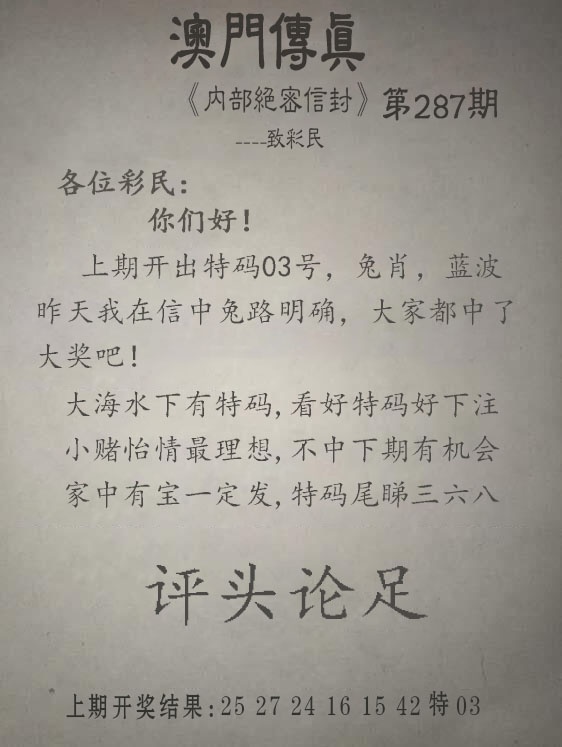 澳門傳眞
《内部絕密信封》第287期
----致彩民
各位彩民：
你们好！
上期开出特码03号，兔肖，蓝波
昨天我在信中兔路明确，大家都中了
大奖吧！
大海水下有特码,看好特码好下注
小赌怡情最理想,不中下期有机会
家中有宝一定发,特码尾睇三六八
评头论足
上期开奖结果:25 27 24 16 15 42特03